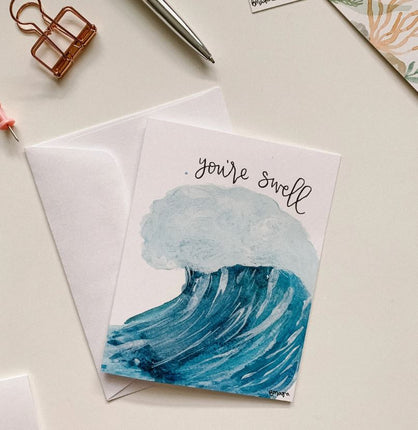 you're swell